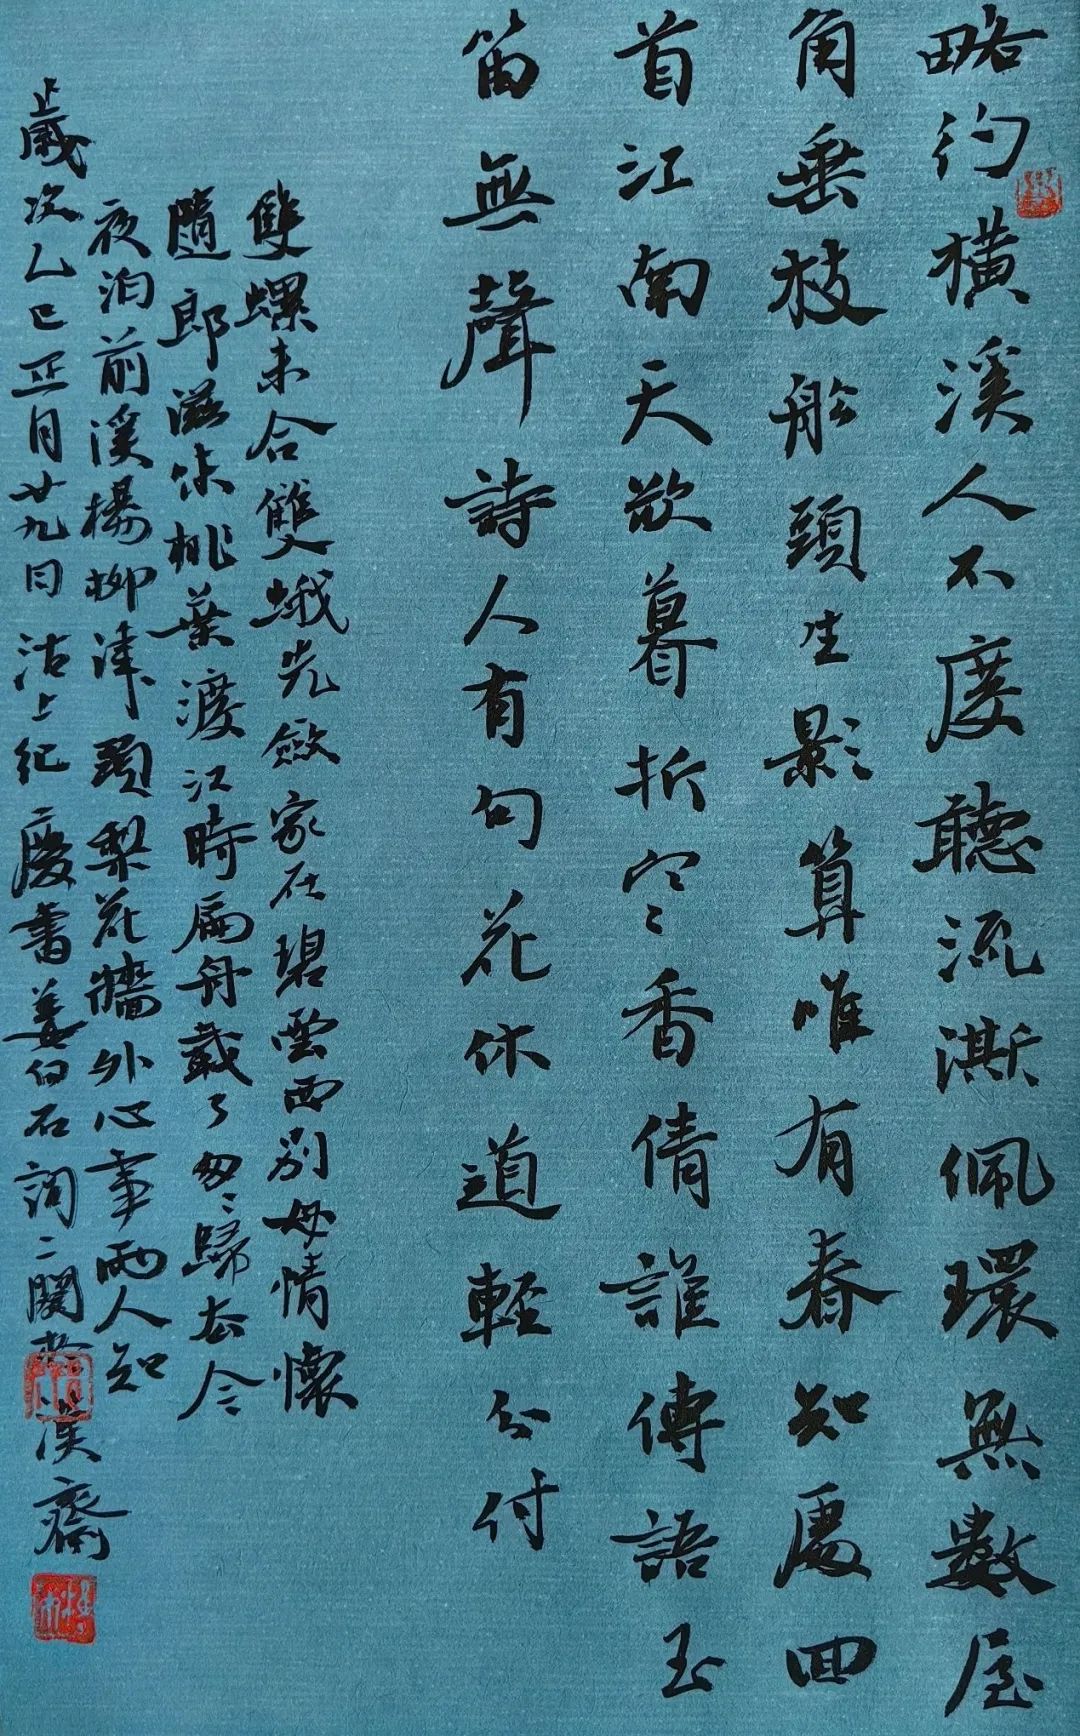 略彴橫溪人不度聽流澌佩環無數屋
角垂枝船頭生影算唯有春知處回
首江南天欲暮折寒香倩誰傳語玉
笛無聲詩人有句花休道輕分付
雙螺未合雙蛾先斂家在碧雲西別母情懷
隨郎滋味桃葉渡江時扁舟載了匆〻歸去今
夜泊前溪楊柳津頭梨花牆外心事兩人知
歲次乙巳正月廿九日沽上紀慶書姜白石詞二闋於漢齋